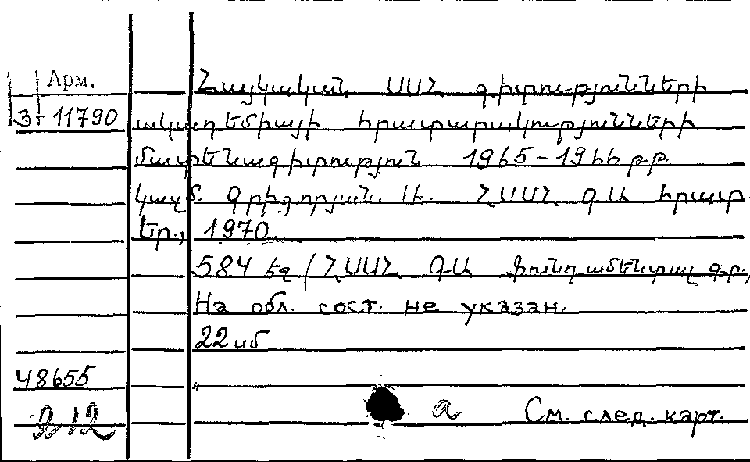 Арм.
Հայկական ՍՍՀ գիտությունների
3-11790
ակադեմիայի հրատարակությունների
մատենագիտություն 1965-1966 թթ.
կազմ. Գրիգորյան Ս. ՀՍՍՀ ԳԱ հրատ
Եր., 1970
584 էջ /ՀՍՍՀ ԳԱ Ֆունդամենտալ գր.,
На обл. сост. не указан.
22 սմ
48655
212
а См. след. карт.